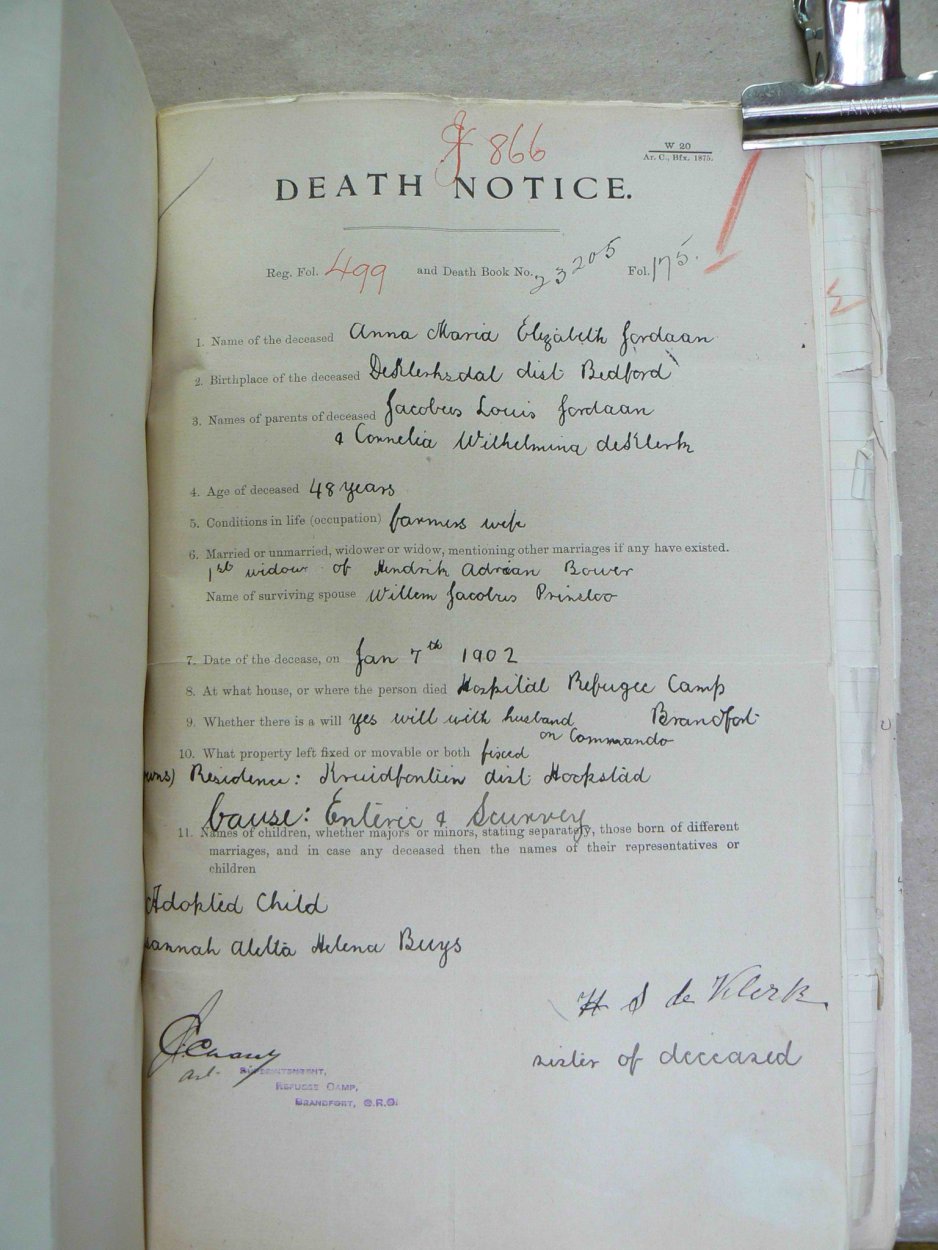 TAIWAN
866
W 20
Ar. C., Bfx. 1875.
DEATH NOTICE.
Reg. Fol. 499 and Death Book No. 23205 Fol. 175.
1. Name of the deceased Anna Maria Elizabeth Jordaan
2. Birthplace of the deceased DeKlerksdal dist Bedford
3. Names of parents of deceased Jacobus Louis Jordaan
& Cornelia Wilhelmina deKlerk
4. Age of deceased 48 years
5. Conditions in life (occupation) farmers wife
6. Married or unmarried, widower or widow, mentioning other marriages if any have existed.
1st widow of Hendrik Adrian Bower
Name of surviving spouse Willem Jacobus Prinsloo
7. Date of the decease, on Jan 7th 1902
8. At what house, or where the person died Hospital Refugee Camp
Brandfort
9. Whether there is a will yes will with husband
on Commando
10. What property left fixed or movable or both fixed
Residence: Kruidfontein dist Hoopstad
Cause: Enteric & Scurvey
11. Names of children, whether majors or minors, stating separately, those born of different
marriages, and in case any deceased then the names of their representatives or
children
Adopted Child
annah Aletta Helena Buys
H S de Klerk
sister of deceased
SUPERINTENDENT,
REFUGEE CAMP,
BRANDFORT, O.R.C.